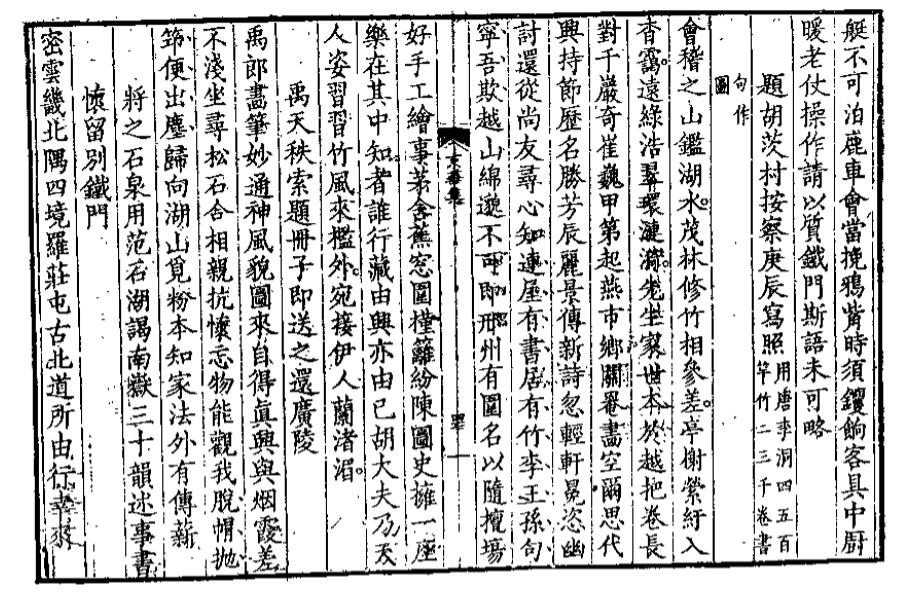 艇不可泊鹿車會當挽鴉觜時須钁餉客具中厨
暖老仗操作請以質鐵門斯語未可略
題胡茨村按察庚辰寫照
用唐李洞四五百
竿竹二三千卷書
句作
圖
會稽之山鑑湖水茂林修竹相參差亭榭縈紆入
杳靄遠綠浩翠環漣漪先生家世本於越把卷長
對千巖奇崔巍甲第起燕市鄉關罨畫空爾思代
興持節歷名勝芳辰麗景傳新詩忽輕軒冕恣幽
討還從尚友尋心知連屋有書居有竹李王孫句
寧吾欺越山綿邈不可即邢州有圖名以隨檀塲
好手工繪事茅舍蕉窓圍槿籬紛陳圖史擁一座
樂在其中知者誰行藏由興亦由己胡大夫乃天
人姿習習竹風來檻外宛接伊人蘭渚湄
禹天秩索題冊子即送之還廣陵
禹郎畵筆妙通神風貌圖來自得眞興與烟霞差
不淺坐尋松石合相親抗懷忘物能觀我脫帽拋
笻便出塵歸向湖山覓粉本知家法外有傳薪
將之石泉用范石湖謁南嶽三十韻述事書
懷留別鐵門
密雲畿北隅四境羅莊屯古北道所由行幸來